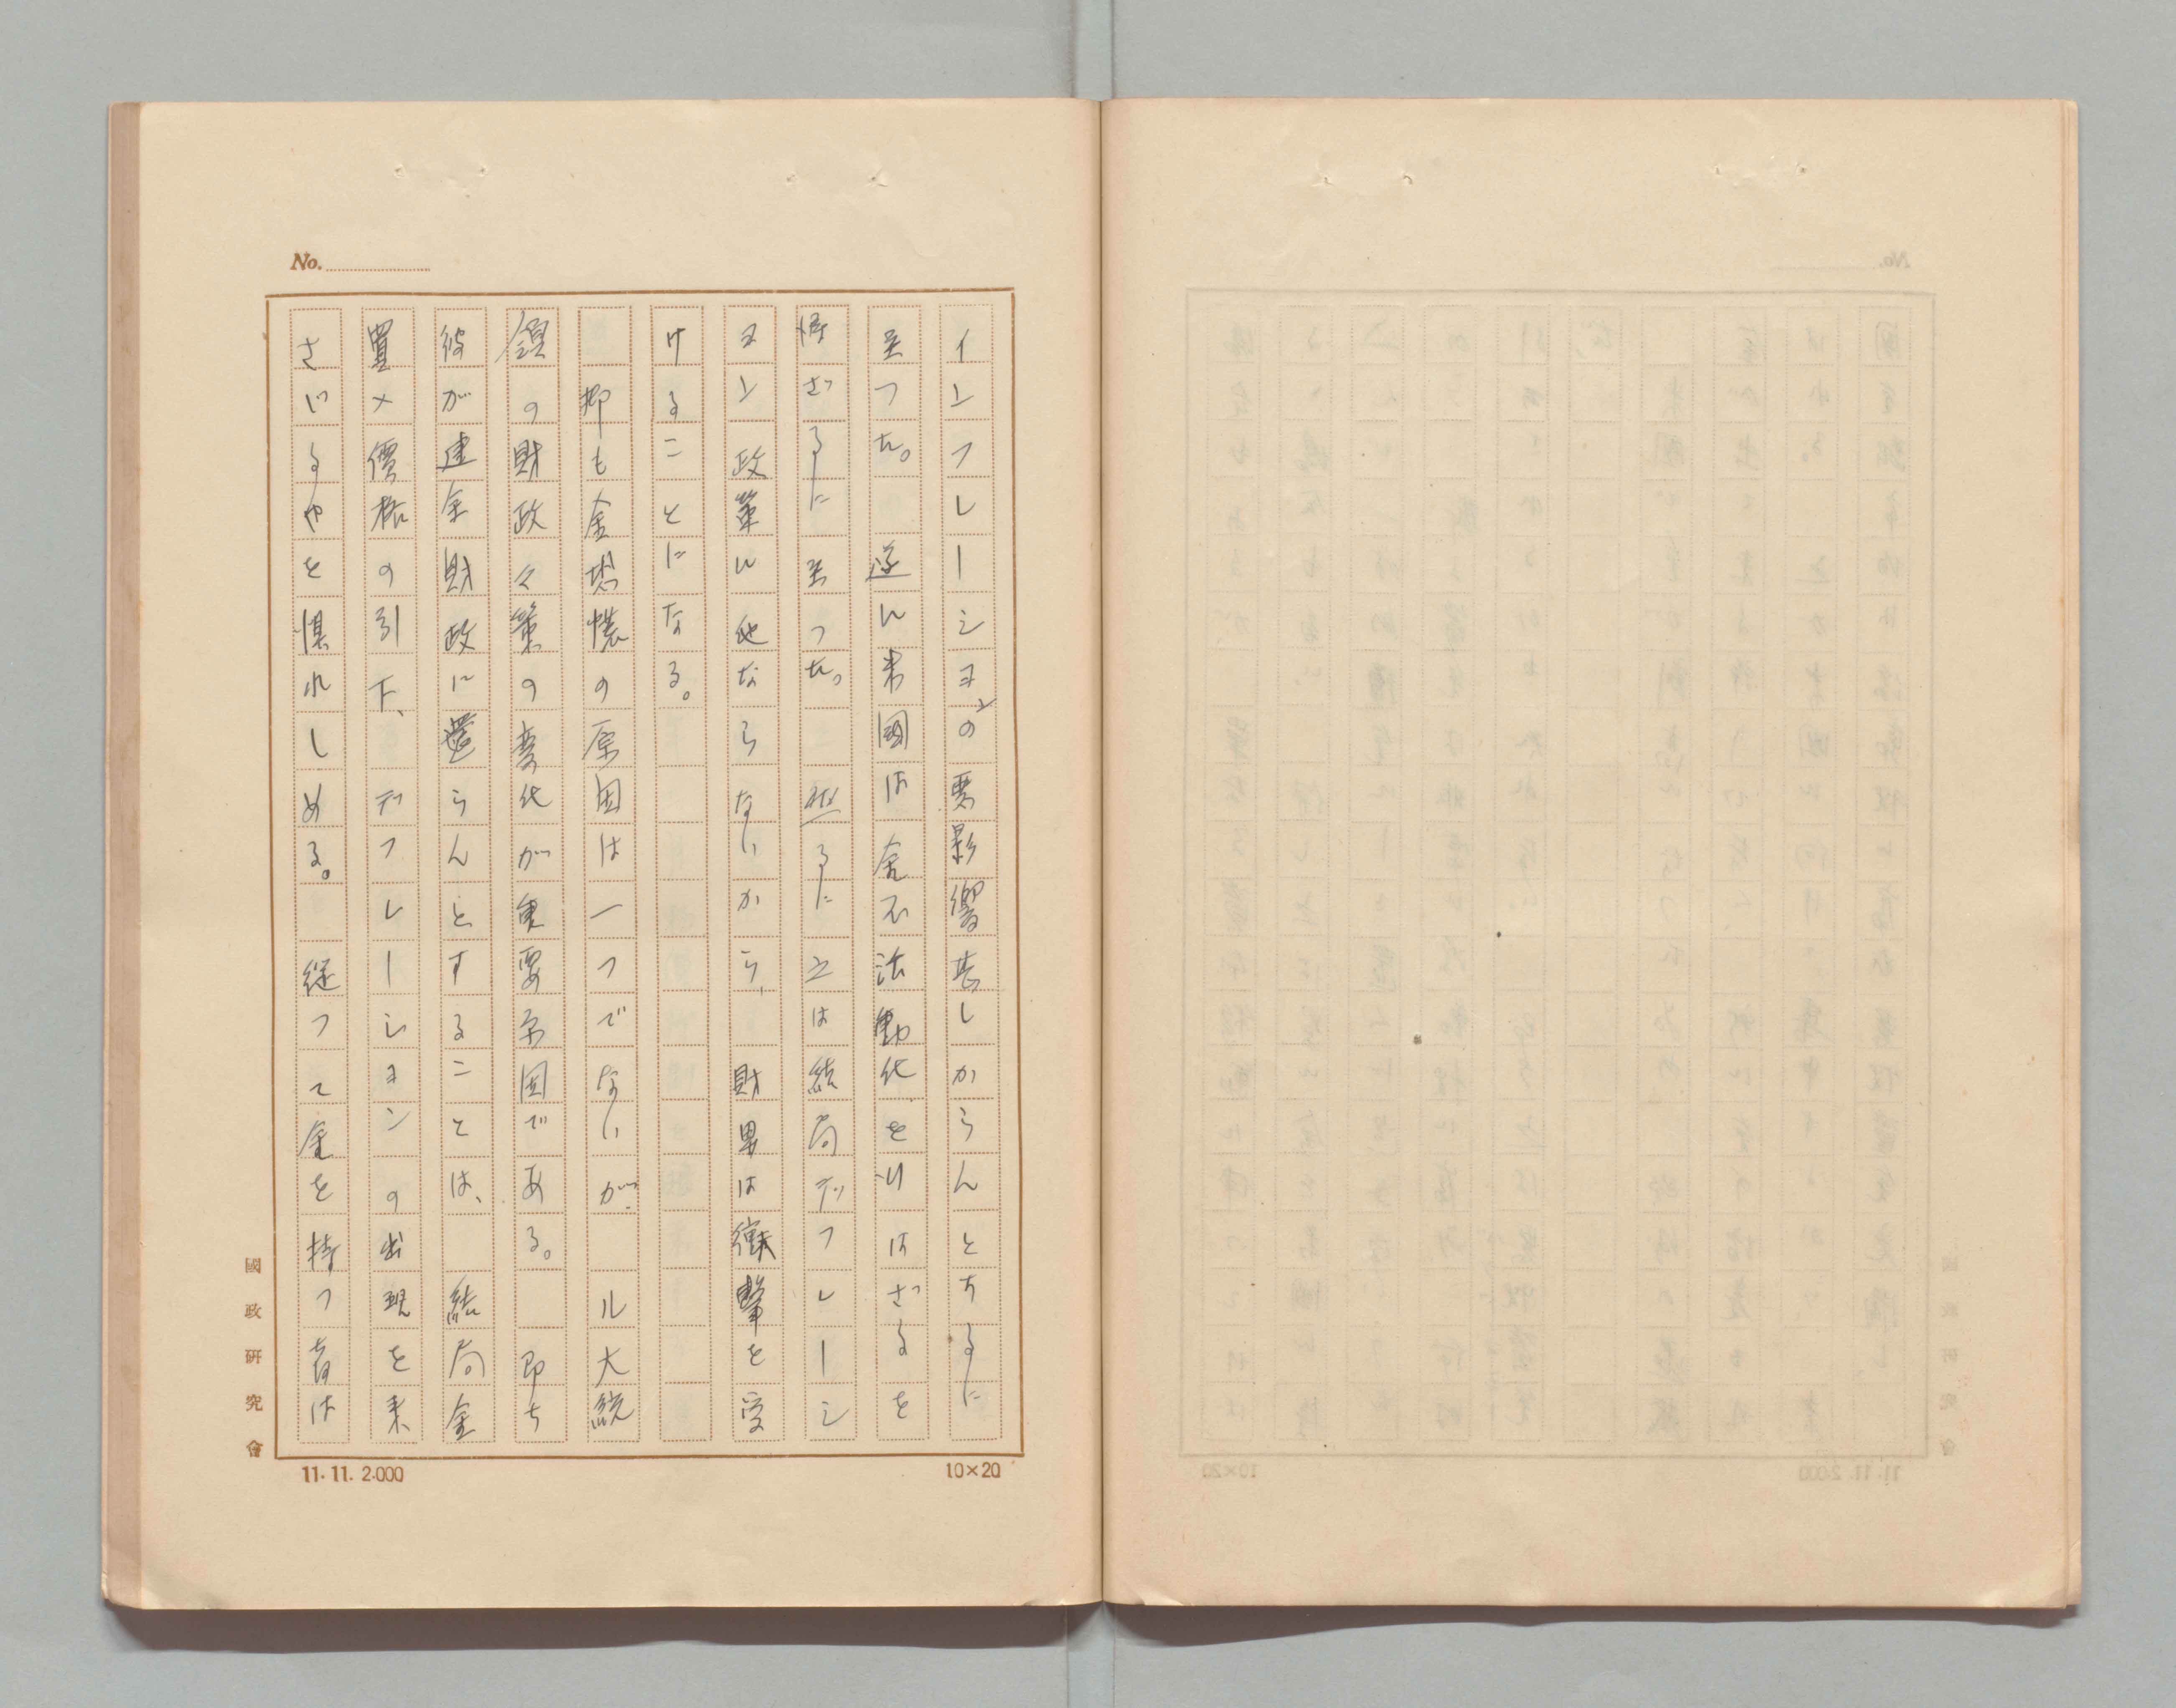 No.
インフレーションの悪影響甚しからんとするに
至つた。　遂に米國は金不活動化を行はざるを
得ざるに至つた。　然るに之は結局デフレーシ
ョン政策に他ならないから、　財界は衝擊を受
けることになる。
　抑も金恐慌の原因は一つでないが、　ル大統
領の財政々策の変化が重要原因である。　即ち
彼が健全財政に還らんとすることは、　結局金
買入價格の引下、　デフレーションの出現を来
さじるやを惧れしめる。　從つて金を持つ者は
國政硏究會
11.11.2.000
10×20